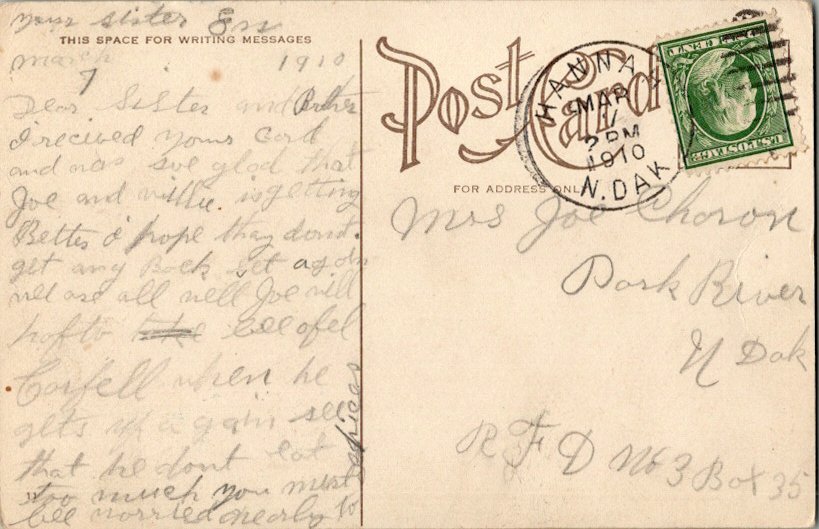 your sister Em
THIS SPACE FOR WRITING MESSAGES
march 7 1910
Dear Sister and Brother
I recived your Card
and was soe glad that
Joe and willie is getting
Better I hope thay dont
get any Back set again
wee are all well Joe will
hofto bee ofel
Carfell when he
gets up again see
that he dont eat
too much you must
bee worried nearly to
pieces
Post Card
FOR ADDRESS ONLY
HANNAH
MAR
1910
N. DAK.
U.S. POSTAGE
Mrs Joe Choron
Park River
N Dak
R F D No 3 Box 35